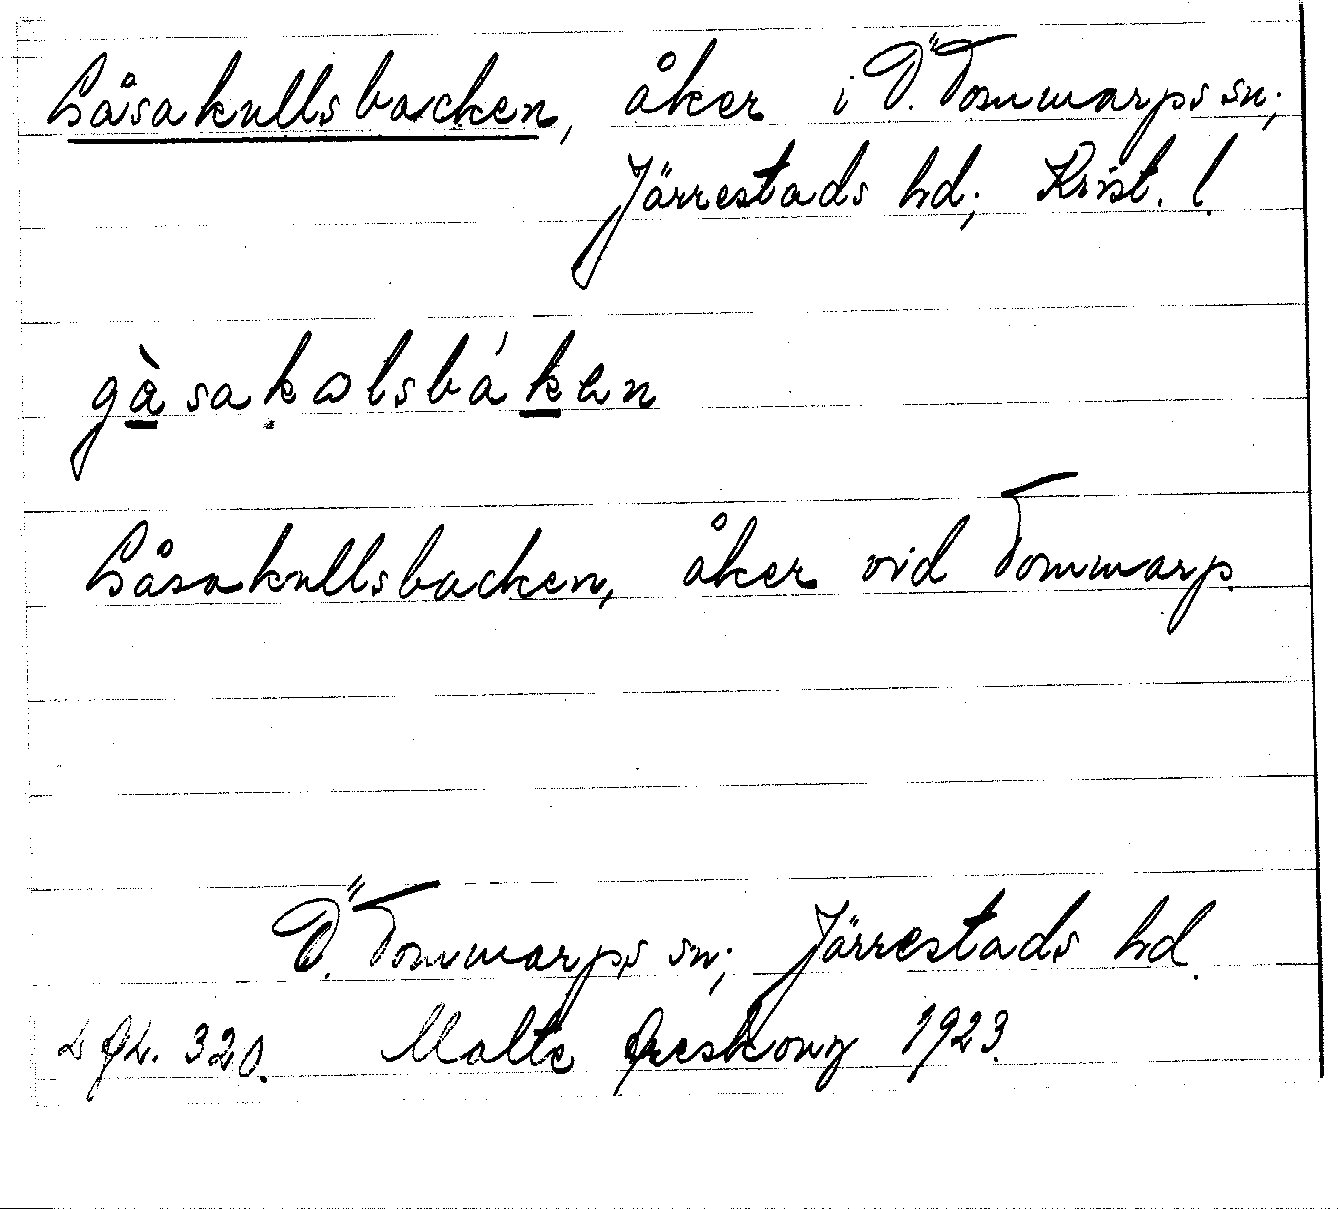 Gåsakullsbacken, åker i Ö. Tommarps sn;
Järrestads hd; Krist. l.
gàsakolsbákən
Gåsakullsbacken, åker vid Tommarp.
Ö. Tommarps sn; Järrestads hd.
320. Malte 1923.